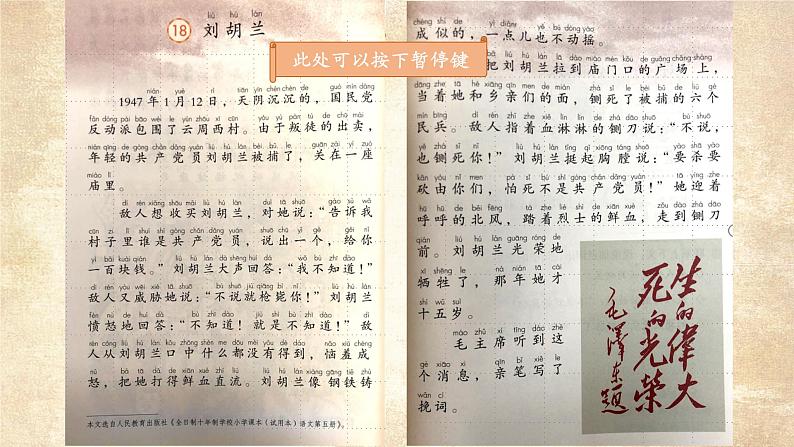 18 刘胡兰
此处可以按下暂停键
1947年1月12日，天阴沉沉的，国民党
反动派包围了云周西村。由于叛徒的出卖，
年轻的共产党员刘胡兰被捕了，关在一座
庙里。
敌人想收买刘胡兰，对她说：“告诉我
村子里谁是共产党员，说出一个，给你
一百块钱。”刘胡兰大声回答：“我不知道！”
敌人又威胁她说：“不说就枪毙你！”刘胡兰
愤怒地回答：“不知道！就是不知道！”敌
人从刘胡兰口中什么都没有得到，恼羞成
怒，把她打得鲜血直流。刘胡兰像钢铁铸
本文选自人民教育出版社《全日制十年制学校小学课本（试用本）语文第五册》。
成似的，一点儿也不动摇。
把刘胡兰拉到庙门口的广场上，
当着她和乡亲们的面，铡死了被捕的六个
民兵。敌人指着血淋淋的铡刀说：“不说，
也铡死你！”刘胡兰挺起胸膛说：“要杀要
砍由你们，怕死不是共产党员！”她迎着
呼呼的北风，踏着烈士的鲜血，走到铡刀
前。刘胡兰光荣地
牺牲了，那年她才
十五岁。
毛主席听到这
个消息，亲笔写了
挽词。
生的偉大
死的光榮
毛澤东題